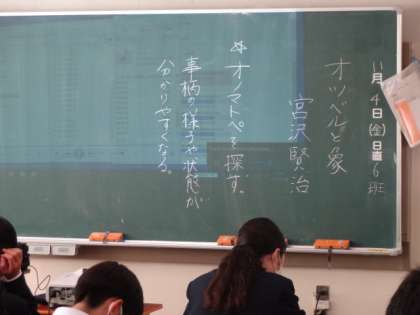 11月4日(金)日直6班
オツベルと象
宮沢賢治
めオノマトペを探す。
事柄の様子や状態が
分かりやすくなる。